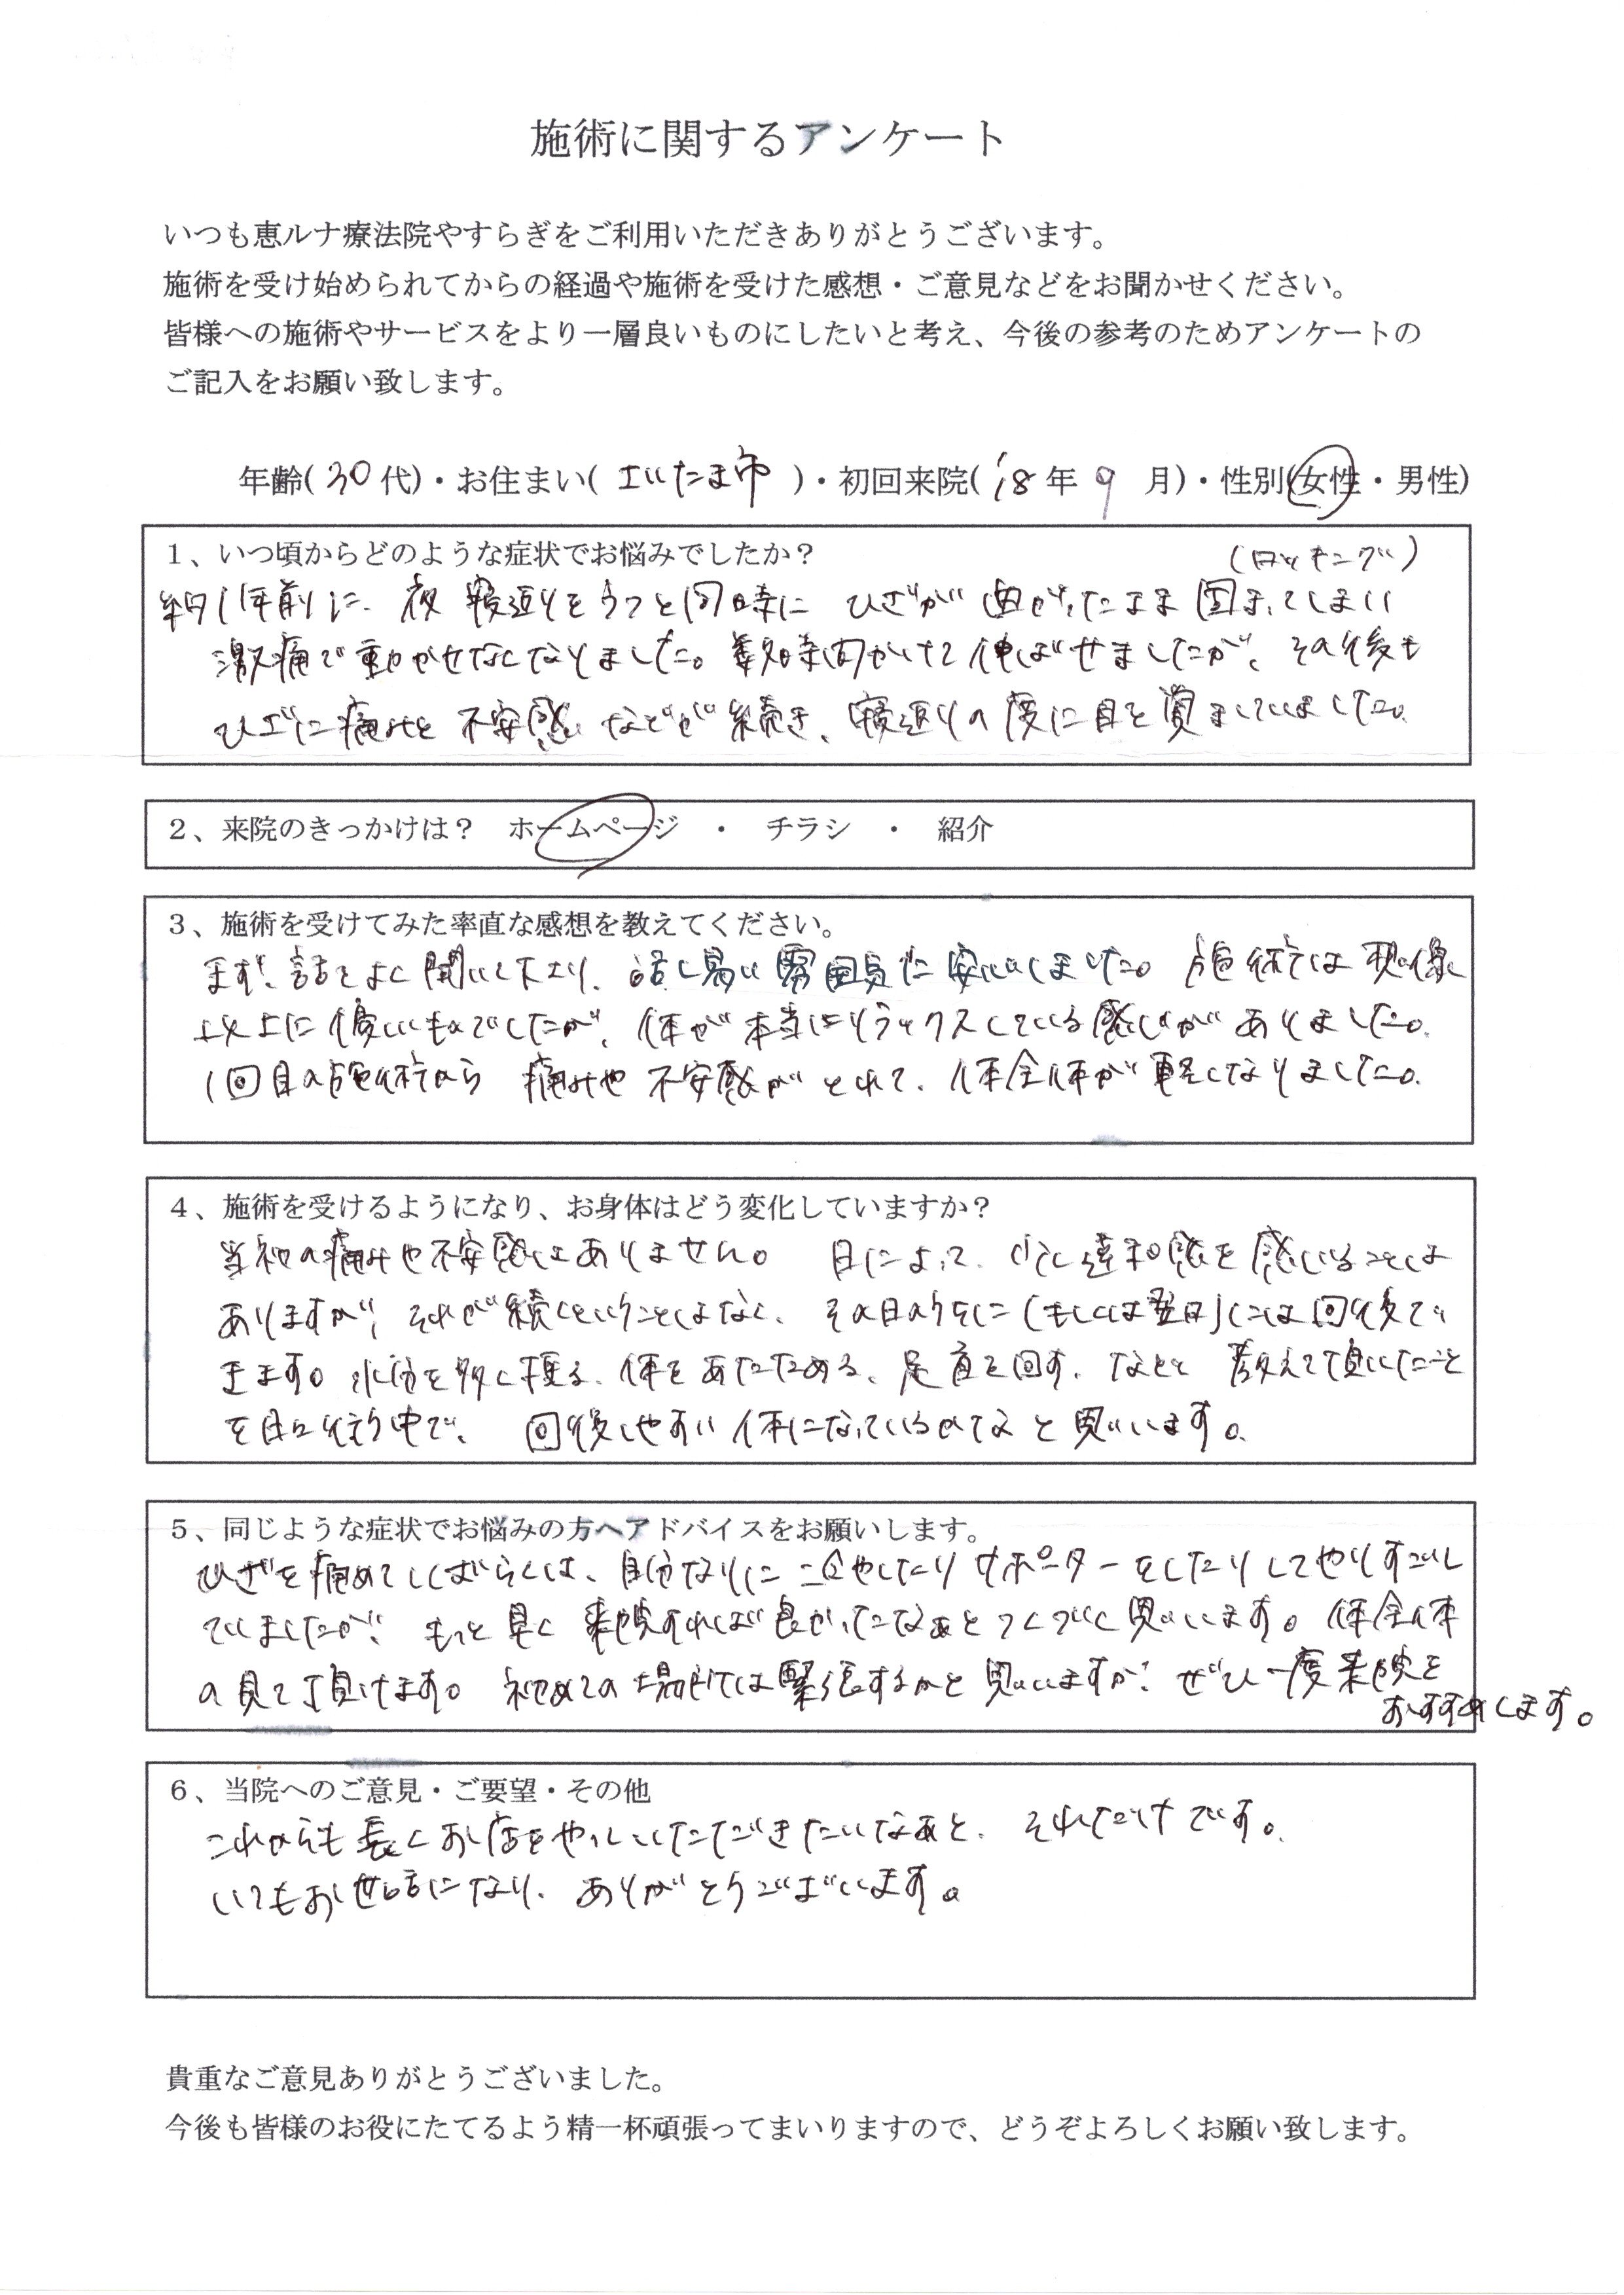 施術に関するアンケート
いつも恵ルナ療法院やすらぎをご利用いただきありがとうございます。
施術を受け始められてからの経過や施術を受けた感想・ご意見などをお聞かせください。
皆様への施術やサービスをより一層良いものにしたいと考え、今後の参考のためアンケートの
ご記入をお願い致します。
年齢(30代)・お住まい(さいたま市)・初回来院('18年9月)・性別(女性・男性)
1、いつ頃からどのような症状でお悩みでしたか?
(ロッキング)
約1年前に、夜 寝返りをうつと同時に ひざが 曲がったまま 固まってしまい
激痛で動かせなくなりました。数時間かけて伸ばせましたが、その後も
ひざに痛みと 不安感 などが続き、寝返りの度に目を覚ましていました。
2、来院のきっかけは? ホームページ ・ チラシ ・ 紹介
3、施術を受けてみた率直な感想を教えてください。
まず、話をよく聞いて下さり、話し易い雰囲気に安心しました。施術は想像
以上に優しいものでしたが、体が本当にリラックスしている感じがありました。
1回目の施術から 痛みや 不安感がとれて、体全体が軽くなりました。
4、施術を受けるようになり、お身体はどう変化していますか?
当初の痛みや不安感はありません。 日によって、少し違和感を感じることは
ありますが、それが続くということはなく、その日のうちに(もしくは翌日)には回復で
きます。水分を多く摂る、体をあたためる、足首を回す、など 教えて頂いたこと
を日々行う中で、回復しやすい体になっているのかなと思います。
5、同じような症状でお悩みの方へアドバイスをお願いします。
ひざを痛めてしばらくは、自分なりに冷やしたりサポーターをしたりしてやりすごし
ていましたが、もっと早く来院すれば良かったなぁとつくづく思います。体全体
の見て頂けます。初めての場所では緊張するかと思いますが、ぜひ一度来院を
おすすめします。
6、当院へのご意見・ご要望・その他
これからも長くお店をやっていただきたいなぁと、それだけです。
いつもお世話になり、ありがとうございます。
貴重なご意見ありがとうございました。
今後も皆様のお役にたてるよう精一杯頑張ってまいりますので、どうぞよろしくお願い致します。